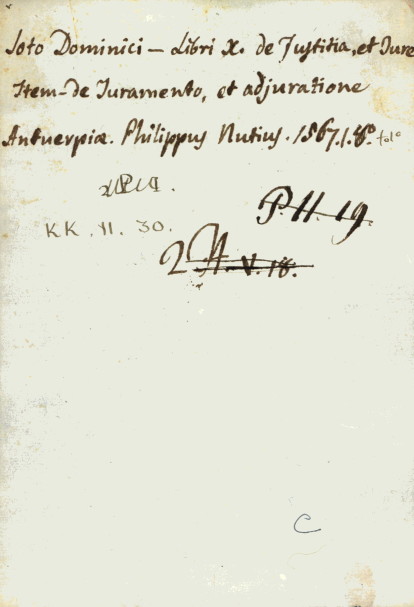 Soto Dominici – Libri X. de Justitia, et Jure
Item – de Juramento, et adjuratione
Antuerpiæ. Philippus Nutius. 1567. 1. 8º folº
P. 11. 19
KK. VI. 30.
2 V. 18.
C